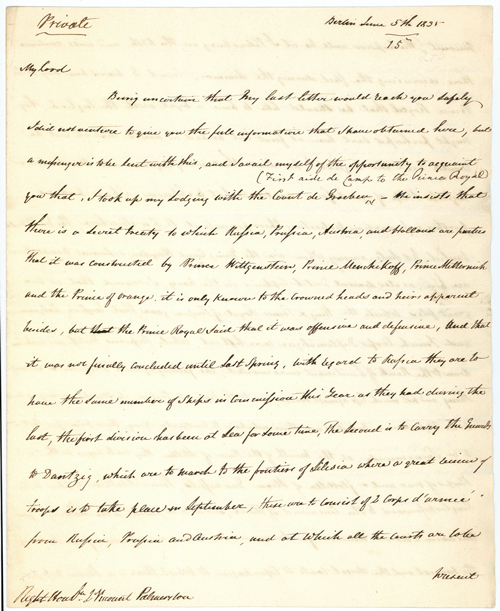 Private
Berlin June 5th 1835
15th
My Lord
Being uncertain that My last letter would reach you safely
I did not venture to give you the full information that I have obtained here, but
a messenger is to be sent with this, and I avail myself of the opportunity to acquaint
(First aide de Camp to the Prince Royal)
you that, I took up my Lodging with the Count de Groeben - He insists that
there is a secret treaty to which Russia, Prussia, Austria, and Holland are parties
That it was constructed by Prince Wittgenstein, Prime Menchikoff, Prime Metternich
and the Prince of orange. it is only known to the crowned heads and heirs apparent
besides, but the Prince Royal said that it was offensive and defensive, And that
it was not finally concluded until Last Spring, with regard to Russia they are to
have the same number of Ships in Commission this Year as they had during the
last, the first division has been at Sea for some time, The Second is to Carry the Guards
to Dantzig, which are to march to the frontiers of Silesia where a great review of
troops is to take place in September, these are to consist of 2 Corps d'armée
from Russia, Prussia and Austria, and at which all the courts are to be
present
Right Honble Viscount Palmerston